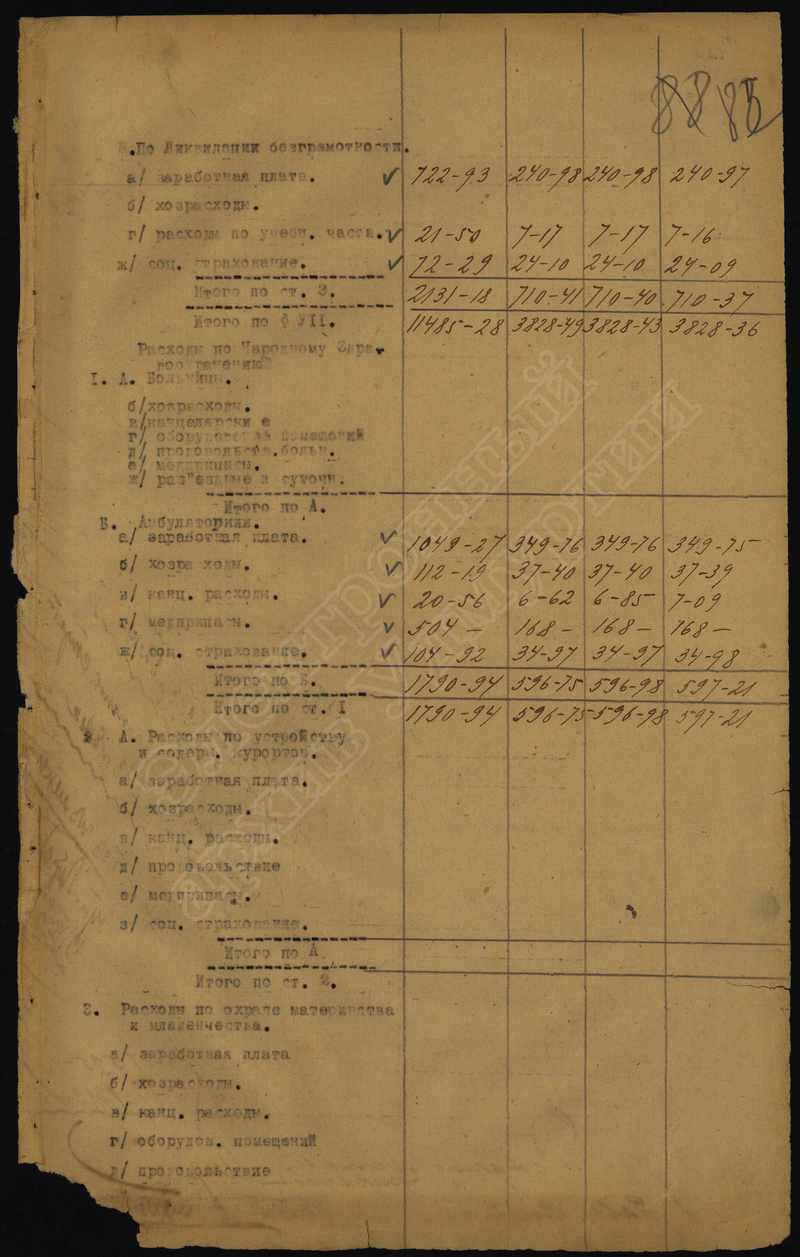 88 85
.По Ликвидации безграмотности.
а/ заработная плата. ✓ 722-93 240-98 240-98 240-97
б/ хозрасходы.
г/ расходы по учебн. части. ✓ 21-50 7-17 7-17 7-16
ж/ соц. страхование. ✓ 72-29 24-10 24-10 24-09
Итого по ст. 3. 2131-18 710-41 710-40 710-37
Итого по § УII. 11485-28 3828-49 3828-43 3828-36
Расходы по Народному Здра-
воохранению
I. А. Больницы.
б/хозрасходы.
в/канцелярские
г/ оборудование помещений
д/ продовольств.больн.
е/ медприпасы.
ж/ раз"ездные и суточн.
Итого по А.
Б. Амбулатории.
а/ заработная плата. ✓ 1049-27 349-76 349-76 349-75
б/ хозрасходы. ✓ 112-19 37-40 37-40 37-39
в/ канц. расходы. ✓ 20-56 6-62 6-85 7-09
г/ медприпасы. ✓ 504- 168- 168- 168-
ж/ соц. страхование. ✓ 104-92 34-97 34-97 34-98
Итого по Б. 1790-94 596-75 596-98 597-21
Итого по ст. I 1790-94 596-75 596-98 597-21
2 А. Расходы по устройству
и содерж. курортов.
а/ заработная плата.
б/ хозрасходы.
в/ канц. расходы.
д/ продовольствие
е/ медприпасы.
з/ соц. страхование.
Итого по А
Итого по ст. 2.
3. Расходы по охране материнства
и младенчества.
а/ заработная плата
б/ хозрасходы.
в/ канц. расходы.
г/ оборудов. помещений
д/ продовольствие